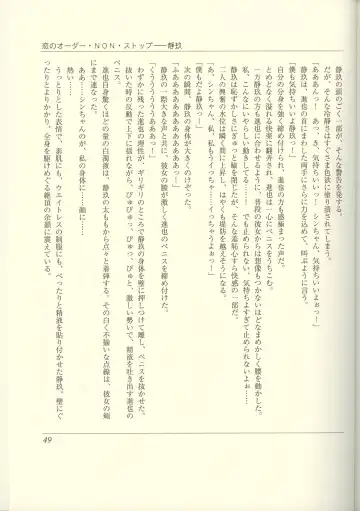 恋のオーダー・NON・ストップ――静玖
静玖の頭のごく一部が、そんな警告を発する。
だが、そんな冷静さはすぐさま色欲に塗り潰されてしまう。
「あああんっ！　あっ、き、気持ちいい、気持ちいいっ！　シンちゃん、気持ちいいよぉっ！」
静玖は、進也の首にまわした両手にさらに力を込めて、叫ぶように言う。
「僕も気持ちいいよ静玖っ！」
自分の分身を強く締め付けられて、進也の方も感極まった声だ。
とめどなく続く快楽に翻弄され、進也は一心にペニスをうちこむ。
一方静玖の方も進也に合わせるように、普段の彼女からは想像もつかないほどなまめかしく腰を動かす。
私、こんなにいやらしい動きしてる……！　だけど、気持ちよすぎて止められないよぉ……！
静玖は恥ずかしさにぎゅっと瞳を閉じたが、そんな羞恥心すら快感の一部だ。
二人の興奮の水位は瞬く間に上昇し、はやくも堤防を越えそうになる。
「あ、シンちゃんっ、私、イッ……イッちゃうよぉっ！」
「僕もだよ静玖っ！」
次の瞬間、静玖の身体が大きくのけぞった。
「ふあああああああああっ！」
静玖の一際大きな声と共に、彼女の膣が激しく進也のペニスを締め上げた。
「くううううううぁあぁっ！」
わずかに残った進也の理性が、ギリギリのところで静玖の身体を壁に押しつけて離し、ペニスを抜かせた。
抜けた時の反動で上下に揺れながら、びゅびゅっ、びゅっ、びゅと、激しい勢いで、精液を吐き出す進也の
ペニス。
進也自身驚くほどの量の白濁液は、静玖の太ももから点々と着弾する。その白く不揃いな点線は、彼女の胸
にまで達なった。
熱い……シンちゃんのが、私の身体に……顔に……
うっとりとした表情で、素肌にも、ウエイトレスの制服にも、べったりと精液を貼り付かせた静玖。壁にぐ
ったりとよりかかり、全身を駆けめぐる絶頂の余韻に震えている。
49